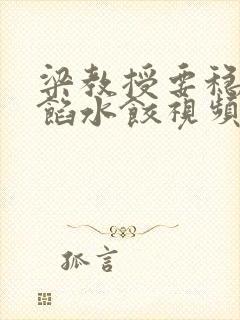 梁教授要稳
餡水餃視頻
孤言